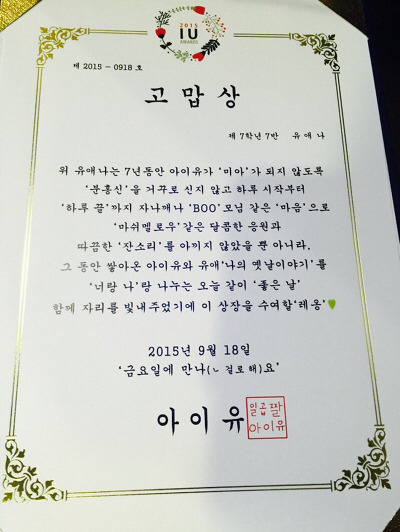 2015
IU
AWARDS
제 2015 - 0918 호
고 맙 상
제 7학년 7반 유 애 나
위 유애나는 7년동안 아이유가 '미아'가 되지 않도록
'분홍신'을 거꾸로 신지 않고 하루 시작부터
'하루 끝'까지 자나깨나 'BOO'모님 같은 '마음'으로
'마쉬멜로우'같은 달콤한 응원과
따끔한 '잔소리'를 아끼지 않았을 뿐 아니라,
그 동안 쌓아온 아이유와 유애'나의 옛날이야기'를
'너랑 나'랑 나누는 오늘 같이 '좋은 날'
함께 자리를 빛내주었기에 이 상장을 수여할'레옹'
2015년 9월 18일
'금요일에 만나(ㄴ걸로해)요'
아 이 유
일곱짤
아이유